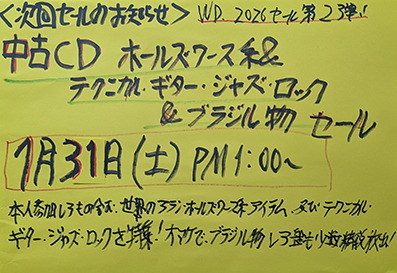 <次回セールのお知らせ> W.D. 2026セール第23弾!
中古CD ホールズワース系&
テクニカル・ギター・ジャズ・ロック
&ブラジル物 セール
1月31日(土) PM1:00~
本人参加しるもの含む、世界のアランホールズワース系アイテム、及びテクニカル・
ギター・ジャズ・ロックを特集!オマケで、ブラジル物レア盤も少数精鋭放出!